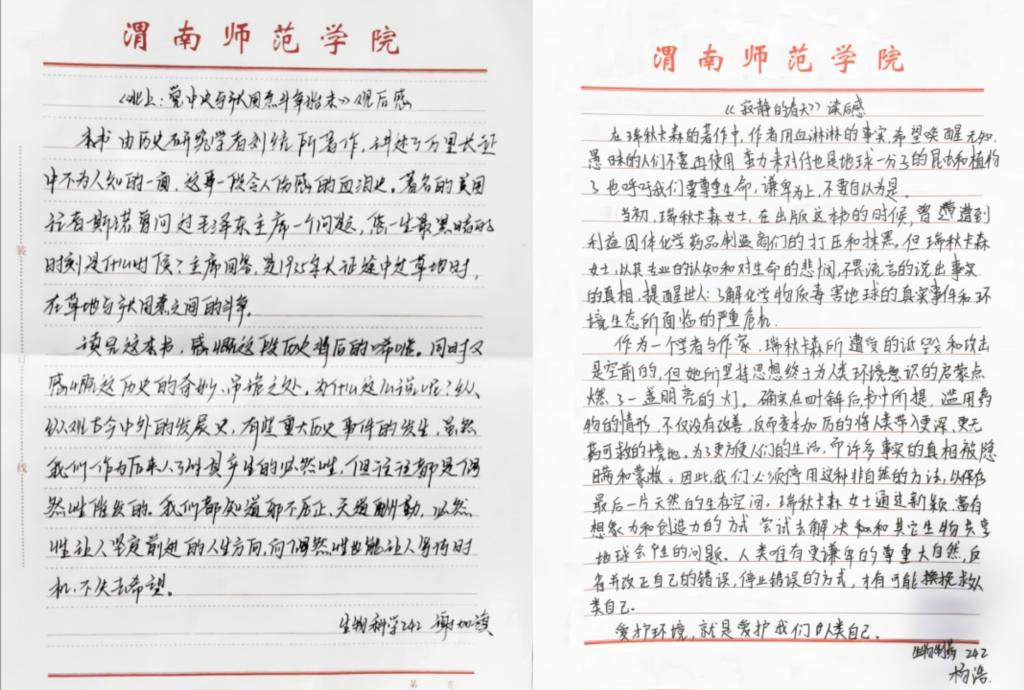 渭南师范学院
《北上:党中央与张国焘斗争始末》观后感
本书由历史研究学者刘统所著作,讲述了万里长征
中不为人知的一面,这事一段令人伤感的血泪史。著名的美国
记者斯诺曾问过毛泽东主席一个问题,您一生最黑暗的
时刻是什么时候?主席回答,是1935年长征途中过草地时,
在草地与张国焘之间的斗争。
读完这本书,感慨这段历史背后的唏嘘。同时又
感慨这历史的奇妙、吊诡之处。为什么这么说呢?纵
纵观古今中外的发展史,有些重大历史事件的发生,虽然
我们作为后来人了解其产生的必然性,但往往都是偶
然性触发的。我们都知道邪不压正、天道酬勤,必然
性让人坚定前进的人生方向,而偶然性也能让人等待时
机、不失去希望。
生物科学242 谢
装
订
线
渭南师范学院
《寂静的春天》读后感
在瑞秋卡森的著作中,作者用血淋淋的事实,希望唤醒无知
愚昧的人们不要再使用暴力来对付也是地球一分子的昆虫和植物
了也呼吁我们要尊重生命,谦卑为上,不要自以为是。
当初,瑞秋卡森女士,在出版这本书的时候,曾遭到
利益团体化学药品制造商们的打压和抹黑,但瑞秋卡森
女士,以其专业的认知和对生命的悲悯,不畏流言的说出事实
的真相,提醒世人:了解化学物质毒害地球的真实事件和环
境生态所面临的严重危机.
作为一个学者与作家,瑞秋卡森所遭受的诋毁和攻击
是空前的,但她所坚持思想终于为人类环境意识的启蒙点
燃了一盏明亮的灯。确实在四十年后书中所提,滥用药
物的情形,不仅没有改善,反而变本加厉的将人类带入更深,更无
药可救的境地,为了方便人们的生活,而许多事实的真相被隐
瞒和蒙蔽。因此,我们必须停用这种非自然的方法,以保存
最后一片天然的生存空间。瑞秋卡森女士通过新颖,富有
想象力和创造力的方式尝试去解决和和其它生物共享
地球合性的问题。人类唯有更谦卑的尊重大自然,反
省并改正自己的错误,停止错误的方式,才有可能挽救人
类自己.
爱护环境,就是爱护我们人类自己.
生物制药242
杨浩.